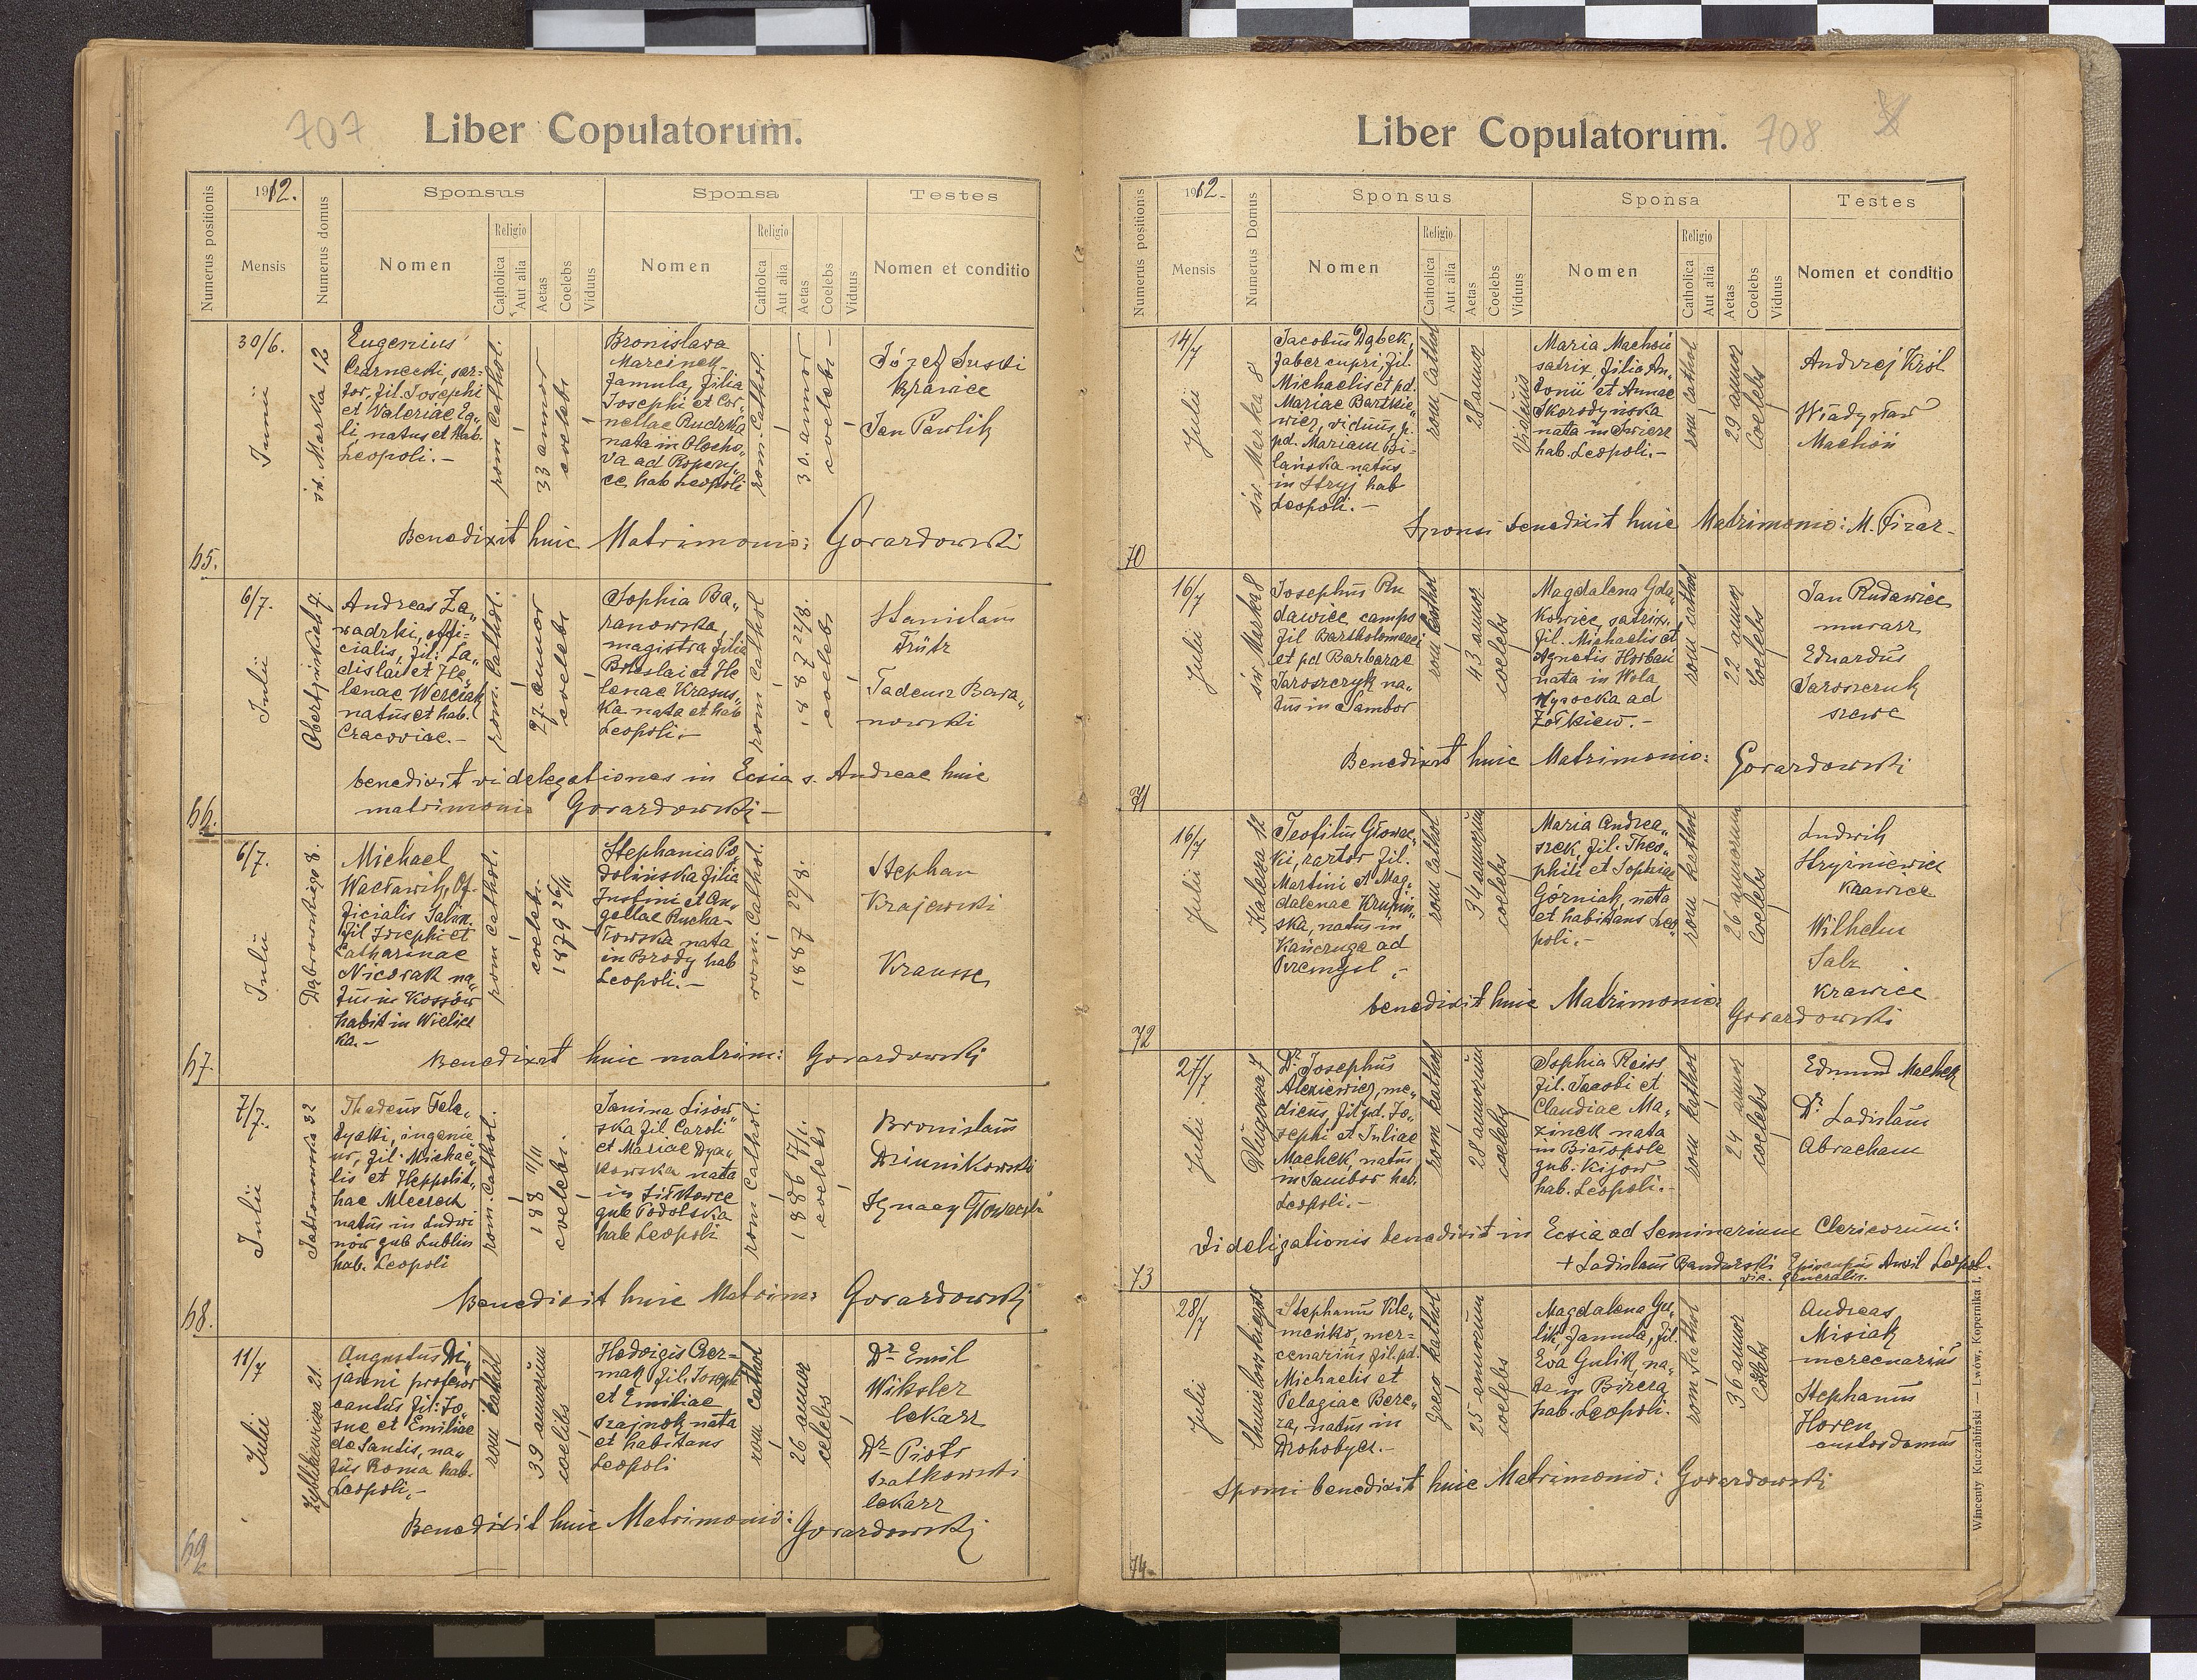 707
Liber Copulatorum.
Numerus positionis
1912.
Mensis
Numerus domus
Sponsus
Nomen
Religio
Catholica
Aut alia
Aetas
Coelebs
Viduus
Sponsa
Nomen
Religio
Catholca
Aut alia
Aetas
Coelebs
Viduus
Testes
Nomen et conditio
65.
30/6.
Junii
św. Marka 12
Eugenius
Czarnecki, sar=
tor, fil. Josephi
et Valeriae
li natus et hab.
Leopoli.-
rom. Cathol.
33 annor
coelebs
Bronislava
Marcinek
famula, filia
Josephi et Cor„
neliae Rudzka
nata in
va ad
ce hab Leopoli
rom. Cathol.
30. annor
coelebs
Józef Suski
Krawiec
Jan Pawlik
Benedixit huic Matrimonio: Gorazdowski
66.
6/7.
Julii
Obertyńskich 7.
Andreas Za„
wadzki, offi=
cialis, fil: La„
dislai et He„
lenae Werciak
natus et hab.
Cracoviae.-
rom. Cathol.
27 annor
coelebs
Sophia Ba„
ranowska
magistra filia
et He
lenae Krasus„
ka nata et hab
Leopoli.-
rom Cathol
1887 22/8.
coelebs
Stanislaus
Trütz
Tadeusz Bara„
nowski
benedixit vi delegationes in Ecsia s. Andreae huic
matrimonio Gorazdowski -
67.
6/7.
Julii
Dąbrowskiego 8.
Michael
Wacławik, Of-
ficialis Salin.
fil Josephi et
Catharinae
Nicorak na„
tus in Kossów
habit in Wielicz
ka.-
rom Cathol.
coelebs.
1879 26/11
Stephania Po„
dolińska filia
Justini et An„
gellae Rucha-
towska nata
in Brody hab
Leopoli.-
rom. Cathol.
1887 22/8.
Stephan
Krajewski
Krausse
Benedixit huic matrim: Gorazdowski
68.
7/7.
Julii
Jabłonowskich 32
Thadeus Fela„
ingenie
ur, fil. Michae„
lis et Heppolit„
hae Mleczak
natus in Ludwi
nów gub Lublin
hab. Leopoli
rom. Cathol.
188 11/11
coelebs.
Janina Lisow„
ska fil Caroli
et Mariae Dya„
kowska nata
in
gub Podolska
hab Leopoli
rom Cathol.
1886 17/1.
coelebs
Bronislaus
Dziunikowski
Ignacy Głowacki
Benedixit huic Matrim: Gorazdowski
69
11/7
Julii
Zyblikiewicza 21.
Augustus Di„
janni profesor
cantus fil: Jo„
sue et Emiliae
de Santis, na„
tus Roma hab.
Leopoli.-
rom Cathol
39 annorum
coelibs
Hedvigis Czer=
mak, fil. Joseph
et Emiliae
Szajnok nata
et habitans
Leopoli
rom Cathol
26 annor
celebs
Dr Emil
Wiksler
lekarz
Dr Piotr
Szatkowski
lekarz
Benedixit huic Matrimonio: Gorazdowski
Liber Copulatorum.
708
Numerus positionis
1912.
Mensis
Numerus Domus
Sponsus
Nomen
Religio
Catholica
Aut alia
Aetas
Coelebs
Viduus
Sponsa
Nomen
Religio
Catholica
Aut alia
Aetas
Coelebs
Viduus
Testes
Nomen et conditio
70
14/7
Julii
św. Marka 8
Jacobus Dąbek,
faber cupri, fil.
Michaelis et pd.
Mariae Bartkie„
wicz, viduus p.
pd. Mariam Bi„
lańska natus
in Stryj hab
Leopoli.-
rom Cathol
28 annor
Viduus
Maria Machoń
satrix, filia An„
tonii et Annae
Skorodynska
nata in Swierz
hab. Leopoli.-
rom Cathol
29 annor
Coelebs
Andrzej Król
Władysław
Machoń
Sponsi benedixit huic Matrimonio: M. Fizar-
71
16/7
Julii
św Marka 8
Josephus Ru
dawiec campo
fil Bartholomaei
et pd Barbarae
Jaroszczyk na„
tus in Sambor
rom Cathol
43 annor
coelebs
Magdalena Gda„
kowicz, satrix,
fil. Michaelis et
Agnetis Horbań
nata in Wola
Wysocka ad
Żółkiew.-
rom Cathol
22 annor
Coelebs
Jan Rudawiec
murarz
Eduardus
Jaroszczuk
szewc
Benedixit huic Matrimonio: Gorazdowski
72
16/7
Julii
Kalecza 12
Teofilus Głowac„
ki, sartor fil.
Martini et Mag„
dalenae Krupiń„
ska, natus in
Kańczuga ad
Przemysl.-
rom Cathol
34 annorum
coelebs
Maria Andrea„
szek, fil. Theo„
phili et Sophiae
Górniak, nata
et habitans Leo
poli.-
rom kathol
26 annorum
Coelebs
Ludwik
Stryżniewicz
Krawiec
Wilhelm
Salz
Krawiec
benedixit huic Matrimonio
Gorazdowski
73
27/7
Julii
Długosza 7
Dr. Josephus
Alexiewicz, me„
dicus, fil pd. Jo„
sephi et Juliae
Machek, natus
in Sambor hab.
Leopoli.-
rom kathol
28 annorum
coelebs
Sophia Reiss
fil. Jacobi et
Claudiae Ma„
zinek nata
in Białopole
gub. Kijów
hab. Leopoli.-
rom kathol
24 annor
coelebs
Edmund Machek
Dr Ladislaus
Abracham
Vi deligationis benedixit in Ecsia ad Seminarium Clericorum:
+ Ladislaus Bandurski Episcopus Auxil Leopol.
vic. generalis.
74
28/7
Julii
Chmielowskiego
Stephanus Kle„
meńko, mer=
cenarius fil. pd.
Michaelis et
Pelagiae Bere„
za, natus in
Drohobycz.-
greco kathol
25 annorum
coelebs
Magdalena Gu„
lik famula, fil.
Eva Gulik, na„
ta in Bircza
hab. Leopoli.
rom kathol
36 annor
Coelebs
Andreas
Misiak
mercenarius
Stephanus
Horen
custos domus
Sponsi benedixit huic Matrimonio: Gorazdowski
Wincenty Kuczabiński — Lwów, Kopernika